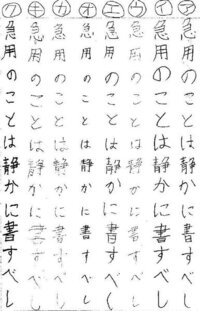 ㋐急用のことは静かに書すべし
㋑急用のことは静かに書すべし
㋒急用のことは静かに書すべし
㋓急用のことは静かに書すべし
㋔急用のことは静かに書すべし
㋕急用のことは静かに書すべし
㋖急用のことは静かに書すべし
㋗急用のことは静かに書すべし